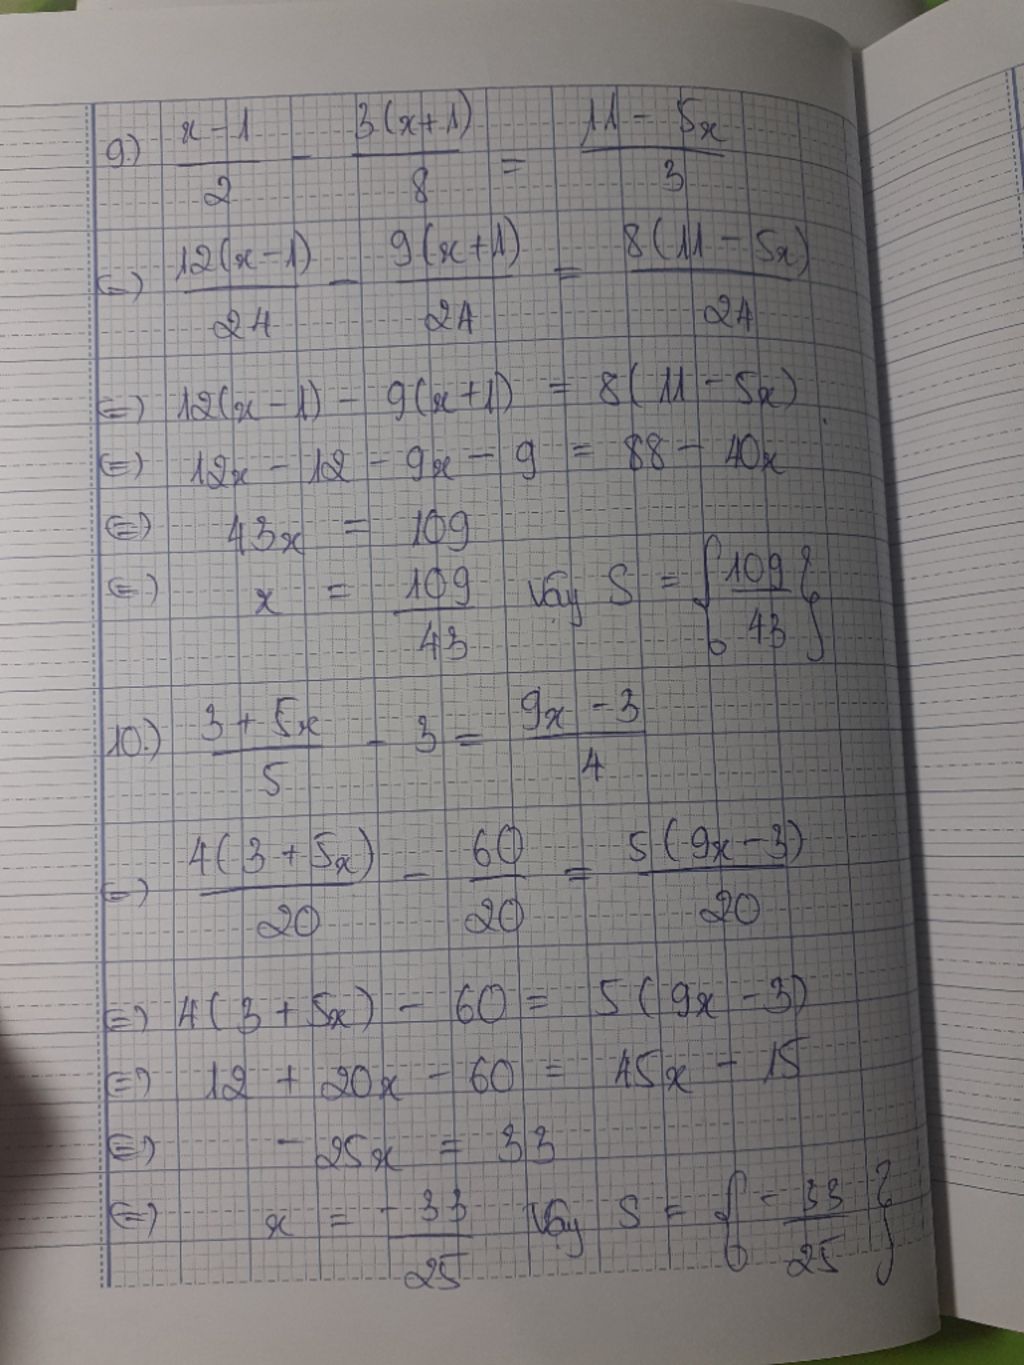 9.) x-1/2 - 3(x+1)/8 = 11-5x/3
(=) 12(x-1)/24 - 9(x+1)/24 = 8(11-5x)/24
(=) 12(x-1) - 9(x+1) = 8(11-5x)
(=) 12x - 12 - 9x - 9 = 88 - 40x
(=) 43x = 109
(=) x = 109/43 Vậy S = {109/43}
10.) 3+5x/5 - 3 = 9x-3/4
(=) 4(3+5x)/20 - 60/20 = 5(9x-3)/20
(=) 4(3+5x) - 60 = 5(9x-3)
(=) 12 + 20x - 60 = 45x - 15
(=) -25x = 33
(=) x = -33/25 Vậy S = {-33/25}